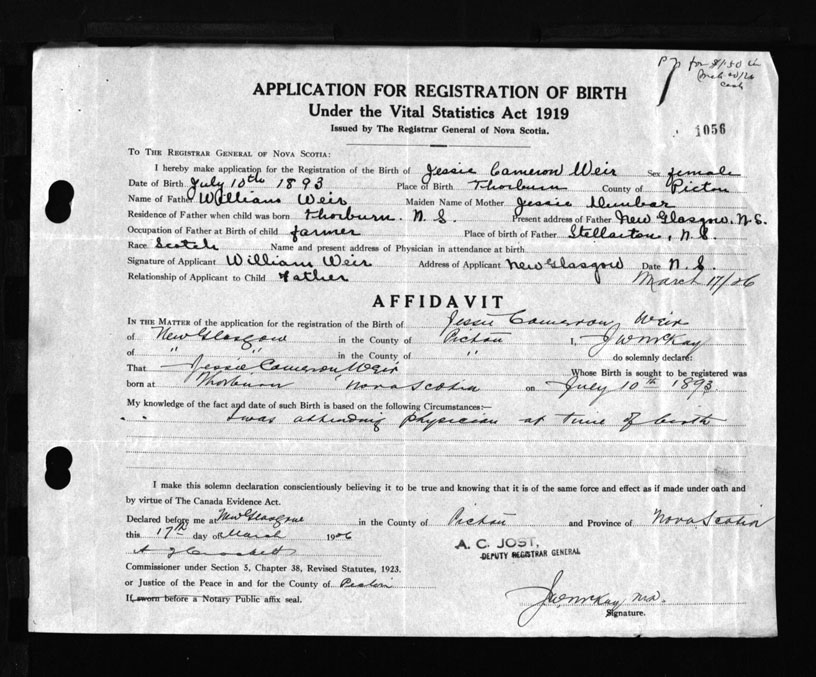 pd for $1.50
March 20/26
Cash
APPLICATION FOR REGISTRATION OF BIRTH
Under the Vital Statistics Act 1919
Issued by The Registrar General of Nova Scotia.
1056
TO THE REGISTRAR GENERAL OF NOVA SCOTIA:
I hereby make application for the Registration of the Birth of Jessie Cameron Weir Sex female
Date of Birth July 10th 1893 Place of Birth Thorburn County of Pictou
Name of Father William Weir Maiden Name of Mother Jessie Dunbar
Residence of Father when child was born Thorburn. N. S. Present address of Father New Glasgow, N.S.
Occupation of Father at Birth of child farmer Place of birth of Father Stellarton, N. S.
Race Scotch Name and present address of Physician in attendance at birth
Signature of Applicant William Weir Address of Applicant New Glasgow Date N. S.
Relationship of Applicant to Child Father March 17/26
AFFIDAVIT
IN THE MATTER of the application for the registration of the Birth of Jessie Cameron Weir
of New Glasgow in the County of Pictou I, J W McKay
of " " in the County of " do solemnly declare:
That Jessie Cameron Weir Whose Birth is sought to be registered was
born at Thorburn Nova Scotia on July 10th 1893.
My knowledge of the fact and date of such Birth is based on the following Circumstances:—
I was attending physician at time of birth
I make this solemn declaration conscientiously believing it to be true and knowing that it is of the same force and effect as if made under oath and
by virtue of The Canada Evidence Act.
Declared before me at New Glasgow in the County of Pictou and Province of Nova Scotia
this 17th day of March 1926
A. C. JOST,
DEPUTY REGISTRAR GENERAL
Commissioner under Section 5, Chapter 38, Revised Statutes, 1923.
or Justice of the Peace in and for the County of Pictou
If sworn before a Notary Public affix seal.
J W McKay MD.
Signature.